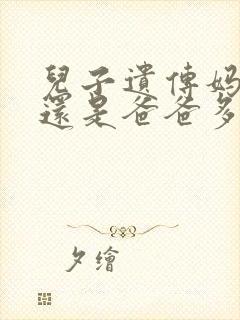 兒子遺傳媽
還是爸爸多
夕繪